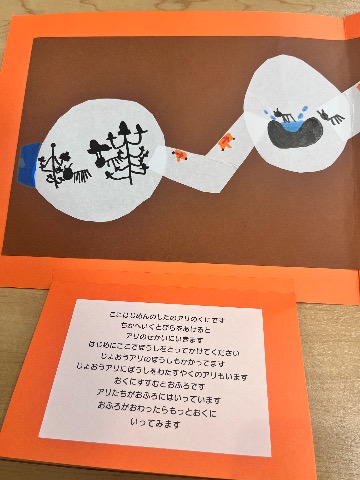 ここはじめんのしたのアリのくにです
ちかへいくとびらをあけると
アリのせかいにいきます
はじめにここでぼうしをとってかけてください
じょおうアリのぼうしもかかってます
じょおうアリにぼうしをわたすやくのアリもいます
おくにすすむとおふろです
アリたちがおふろにはいっています
おふろがおわったらもっとおくに
いってみます